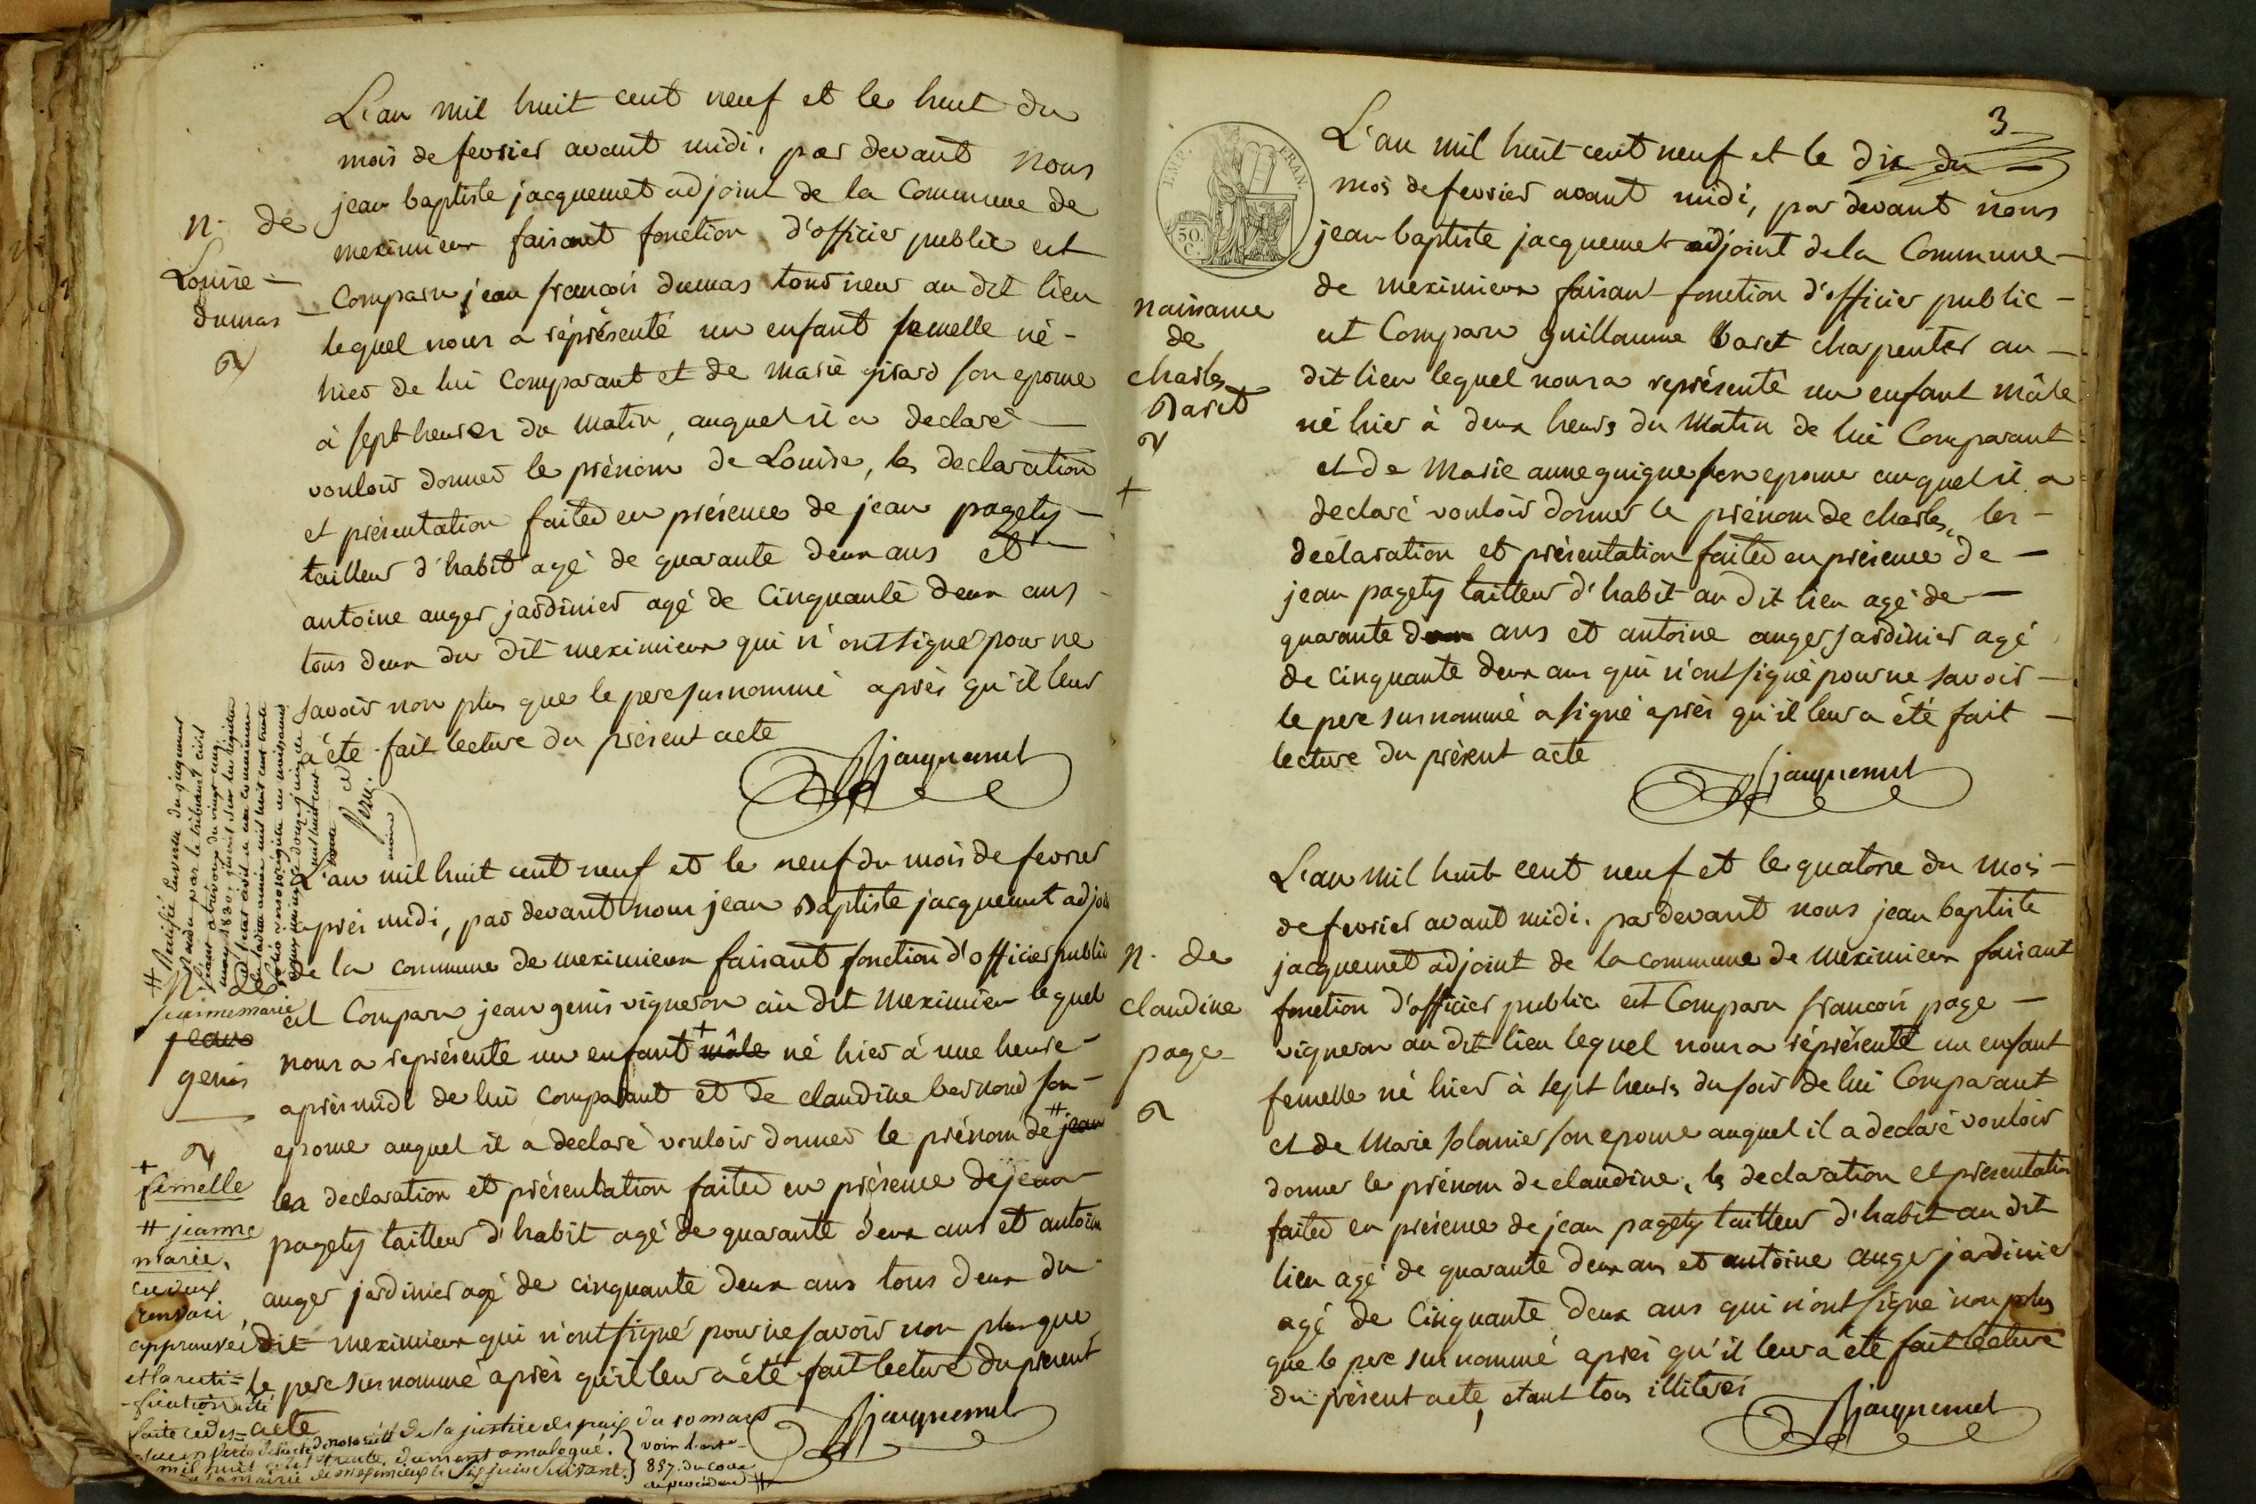 L'an mil huit cent neuf et les huit du
mois de fevrier avant midi, par devant nous
jean baptiste jacquemet adjoint de la Commune de
meximieux faisant fonction d'officier public est
Comparu jean francois dumas tourneur au dit lieu
lequel nous a réprésenté un enfant femelle né -
hier de lui Comparant et de marie girard son epouse
à sept heures du matin, auquel il a declaré -
vouloir donner le prénom de Louise, les declaration
et présentation faites en présence de jean pagety -
tailleur d'habit agé de quarante deux ans et
antoine auger jardinier agé de Cinquante deux ans
tous deux du dit meximieux qui n'ont signé pour ne
savoir non plus que le pere susnommé après qu'il leur
a été fait lecture du présent acte
jacquemet
n. de
Louise -
dumas -
L'an mil huit cent neuf et le neuf du mois de fevrier
après midi, par devant nous jean Baptiste jacquemet adjoi
de la commune de meximieux faisant fonction d'officier public
est Comparu jean genis vigneron au dit Meximieux lequel
nous a représenté un enfant + mâle né hier à une heure -
après midi de lui comparant et de claudine bernard son -
epouse auquel il a declaré vouloir donner le prénom de # jean
les declaration et présentation faites en présence de jean -
pagety tailleur d'habit agé de quarante deux ans et antoine
auger jardinier agé de cinquante deux ans tous deux du
dit meximieux qui n'ont signé pour ne savoir non plus que
le pere susnommé après qu'il leur a été fait lecture du present
acte
jacquemet
# Rectifié en vertu du jugement
rendu par le tribunal civil
N. de
jeanne marie
jean
genis
+
femelle
# jeanne
marie.
renvoi
approuvés
et la recti=
fication
de la justice de paix du 10 mars
mil huit cent trente, dument omologué.
à la mairie de meximieux le six juin suivant.
voir l'art.
857. du code
de procédure #
3
L'an mil huit cent neuf et le dix du -
mois de fevrier avant midi, par devant nous
jean baptiste jacquemet adjoint de la Commune -
de meximieux faisant fonction d'officier public -
est Comparu guillaume baret charpentier au -
dit lieu lequel nous a représenté un enfant mâle
né hier à deux heures du Matin de lui Comparant
et de Marie anne guigue son epouse auquel il a
declaré vouloir donner le prénom de charles, les -
déclaration et présentation faites en présence de -
jean pagety tailleur d'habit au dit lieu agé de -
quarante deux ans et antoine auger jardinier agé
de cinquante deux ans qui n'ont signé pour ne savoir -
le pere susnommé a signé après qu'il leur a été fait -
lecture du présent acte
jacquemet
IMP. FRAN.
50 C.
naissance
de
charles
Baret
+
L'an mil huit cent neuf et le quatorze du mois -
de fevrier avant midi, par devant nous jean baptiste
jacquemet adjoint de la commune de meximieux faisant
fonction d'officier public est Comparu francois page -
vigneron au dit lieu lequel nous a réprésenté un enfant
femelle né hier à sept heures du soir de lui Comparant
et de Marie solanier son epouse auquel il a declaré vouloir
donner le prénom de claudine, les declaration et presentation
faites en présence de jean pagety tailleur d'habit au dit
lieu agé de quarante deux ans et antoine auger jardinier
agé de Cinquante deux ans qui n'ont signé non plus
que le pere susnommé après qu'il leur a été fait lecture
du présent acte, etant tous illiterés
jacquemet
n. de
claudine
page -